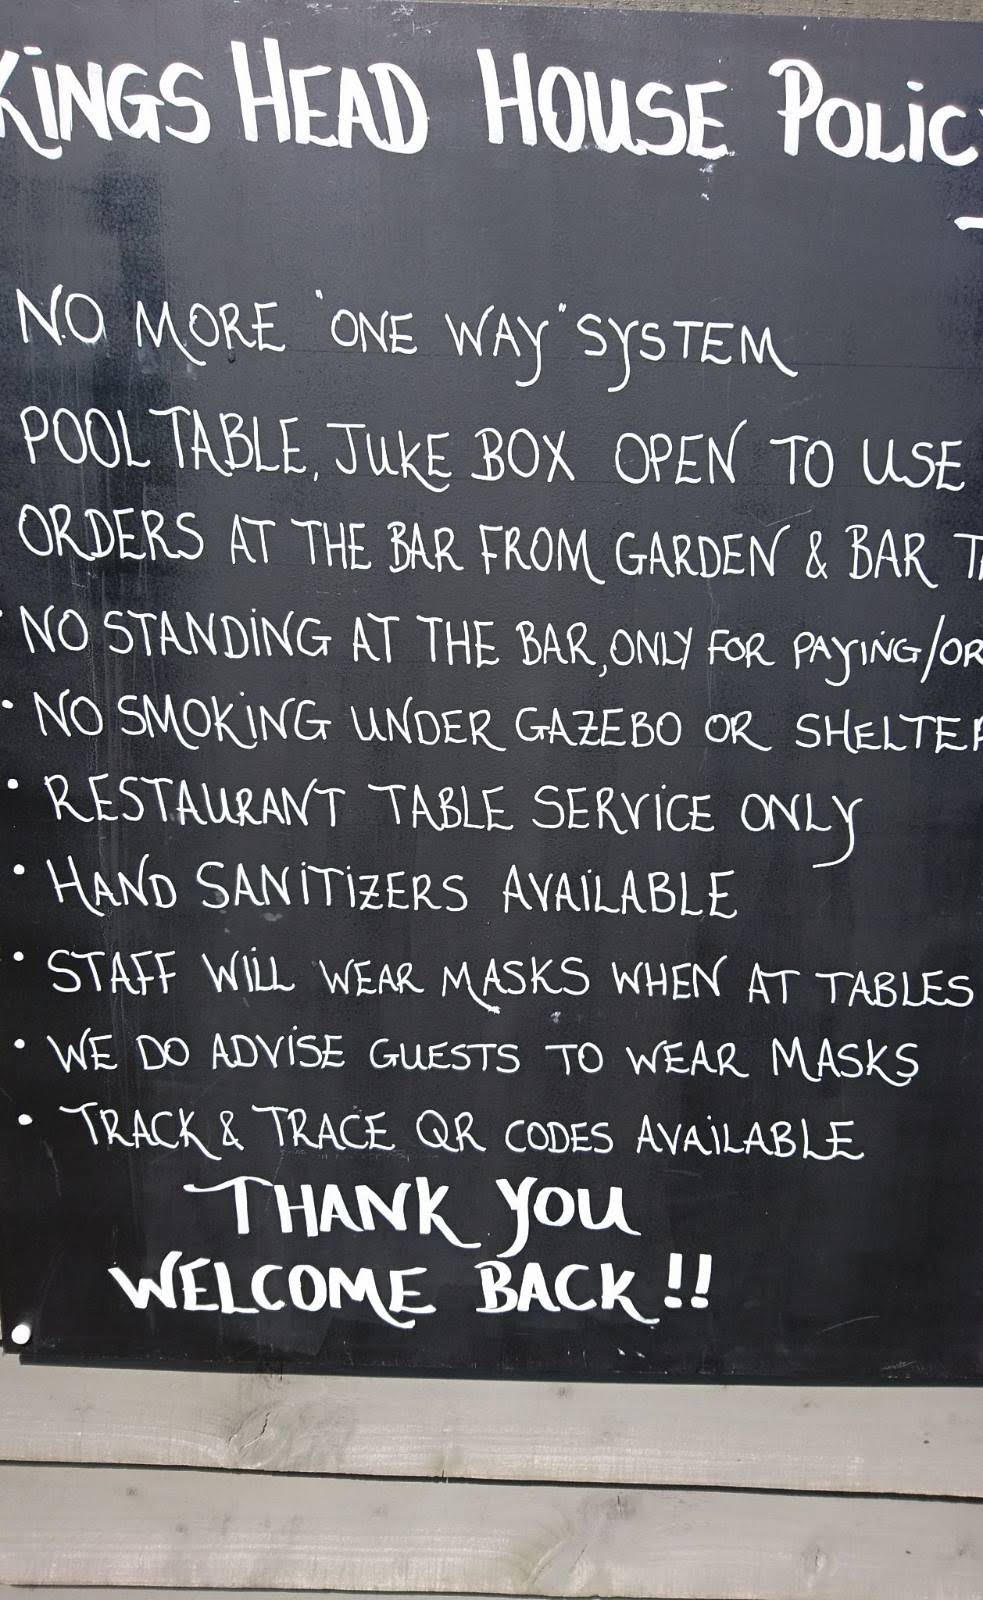 KINGS HEAD HOUSE POLICY
NO MORE "ONE WAY" SYSTEM
POOL TABLE, JUKE BOX OPEN TO USE
ORDERS AT THE BAR FROM GARDEN & BAR
NO STANDING AT THE BAR, ONLY FOR PAYING/OR
• NO SMOKING UNDER GAZEBO OR SHELTER
• RESTAURANT TABLE SERVICE ONLY
• HAND SANITIZERS AVAILABLE
• STAFF WILL WEAR MASKS WHEN AT TABLES
• WE DO ADVISE GUESTS TO WEAR MASKS
• TRACK & TRACE QR CODES AVAILABLE
THANK YOU
WELCOME BACK!!